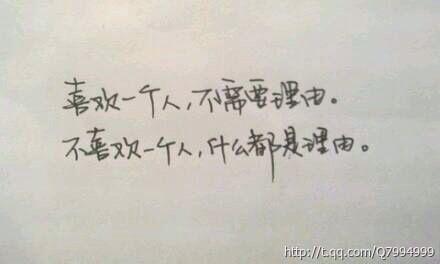 喜欢一个人，不需要理由。
不喜欢一个人，什么都是理由。
http://t.qq.com/Q7994999